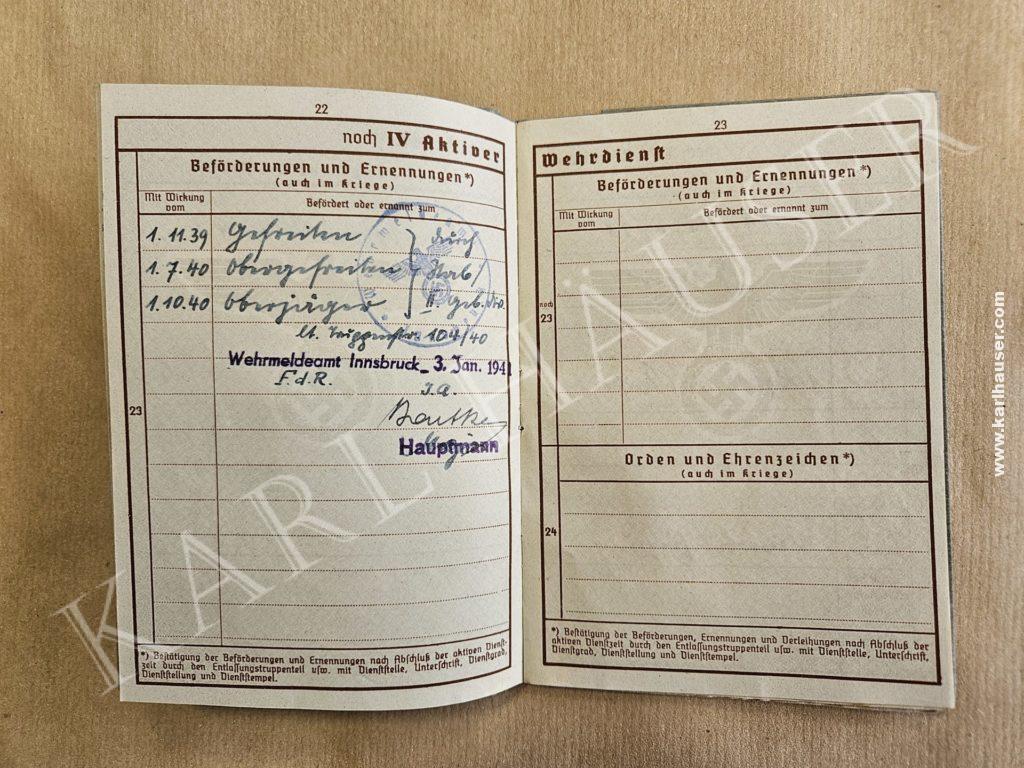 22
noch IV Aktiver
Beförderungen und Ernennungen*)
(auch im Kriege)
Mit Wirkung vom
Befördert oder ernannt zum
1.11.39 Gefreiten durch
1.7.40 Obergefreiten Stab/
1.10.40 Oberjäger II Geb.
lt. 104/40
Wehrmeldeamt Innsbruck 3. Jan. 1941
F.d.R. I.A.
Hauptmann
23
*) Bestätigung der Beförderungen und Ernennungen nach Abschluß der aktiven Dienst-
zeit durch den Entlassungstruppenteil usw. mit Dienststelle, Unterschrift, Dienstgrad,
Dienststellung und Dienststempel.
23
Wehrdienst
Beförderungen und Ernennungen*)
(auch im Kriege)
Mit Wirkung vom
Befördert oder ernannt zum
noch
23
Orden und Ehrenzeichen*)
(auch im Kriege)
24
*) Bestätigung der Beförderungen, Ernennungen und Verleihungen nach Abschluß der
aktiven Dienstzeit durch den Entlassungstruppenteil usw. mit Dienststelle, Unterschrift,
Dienstgrad, Dienststellung und Dienststempel.
KARL HÄUSER
www.karlhauser.com